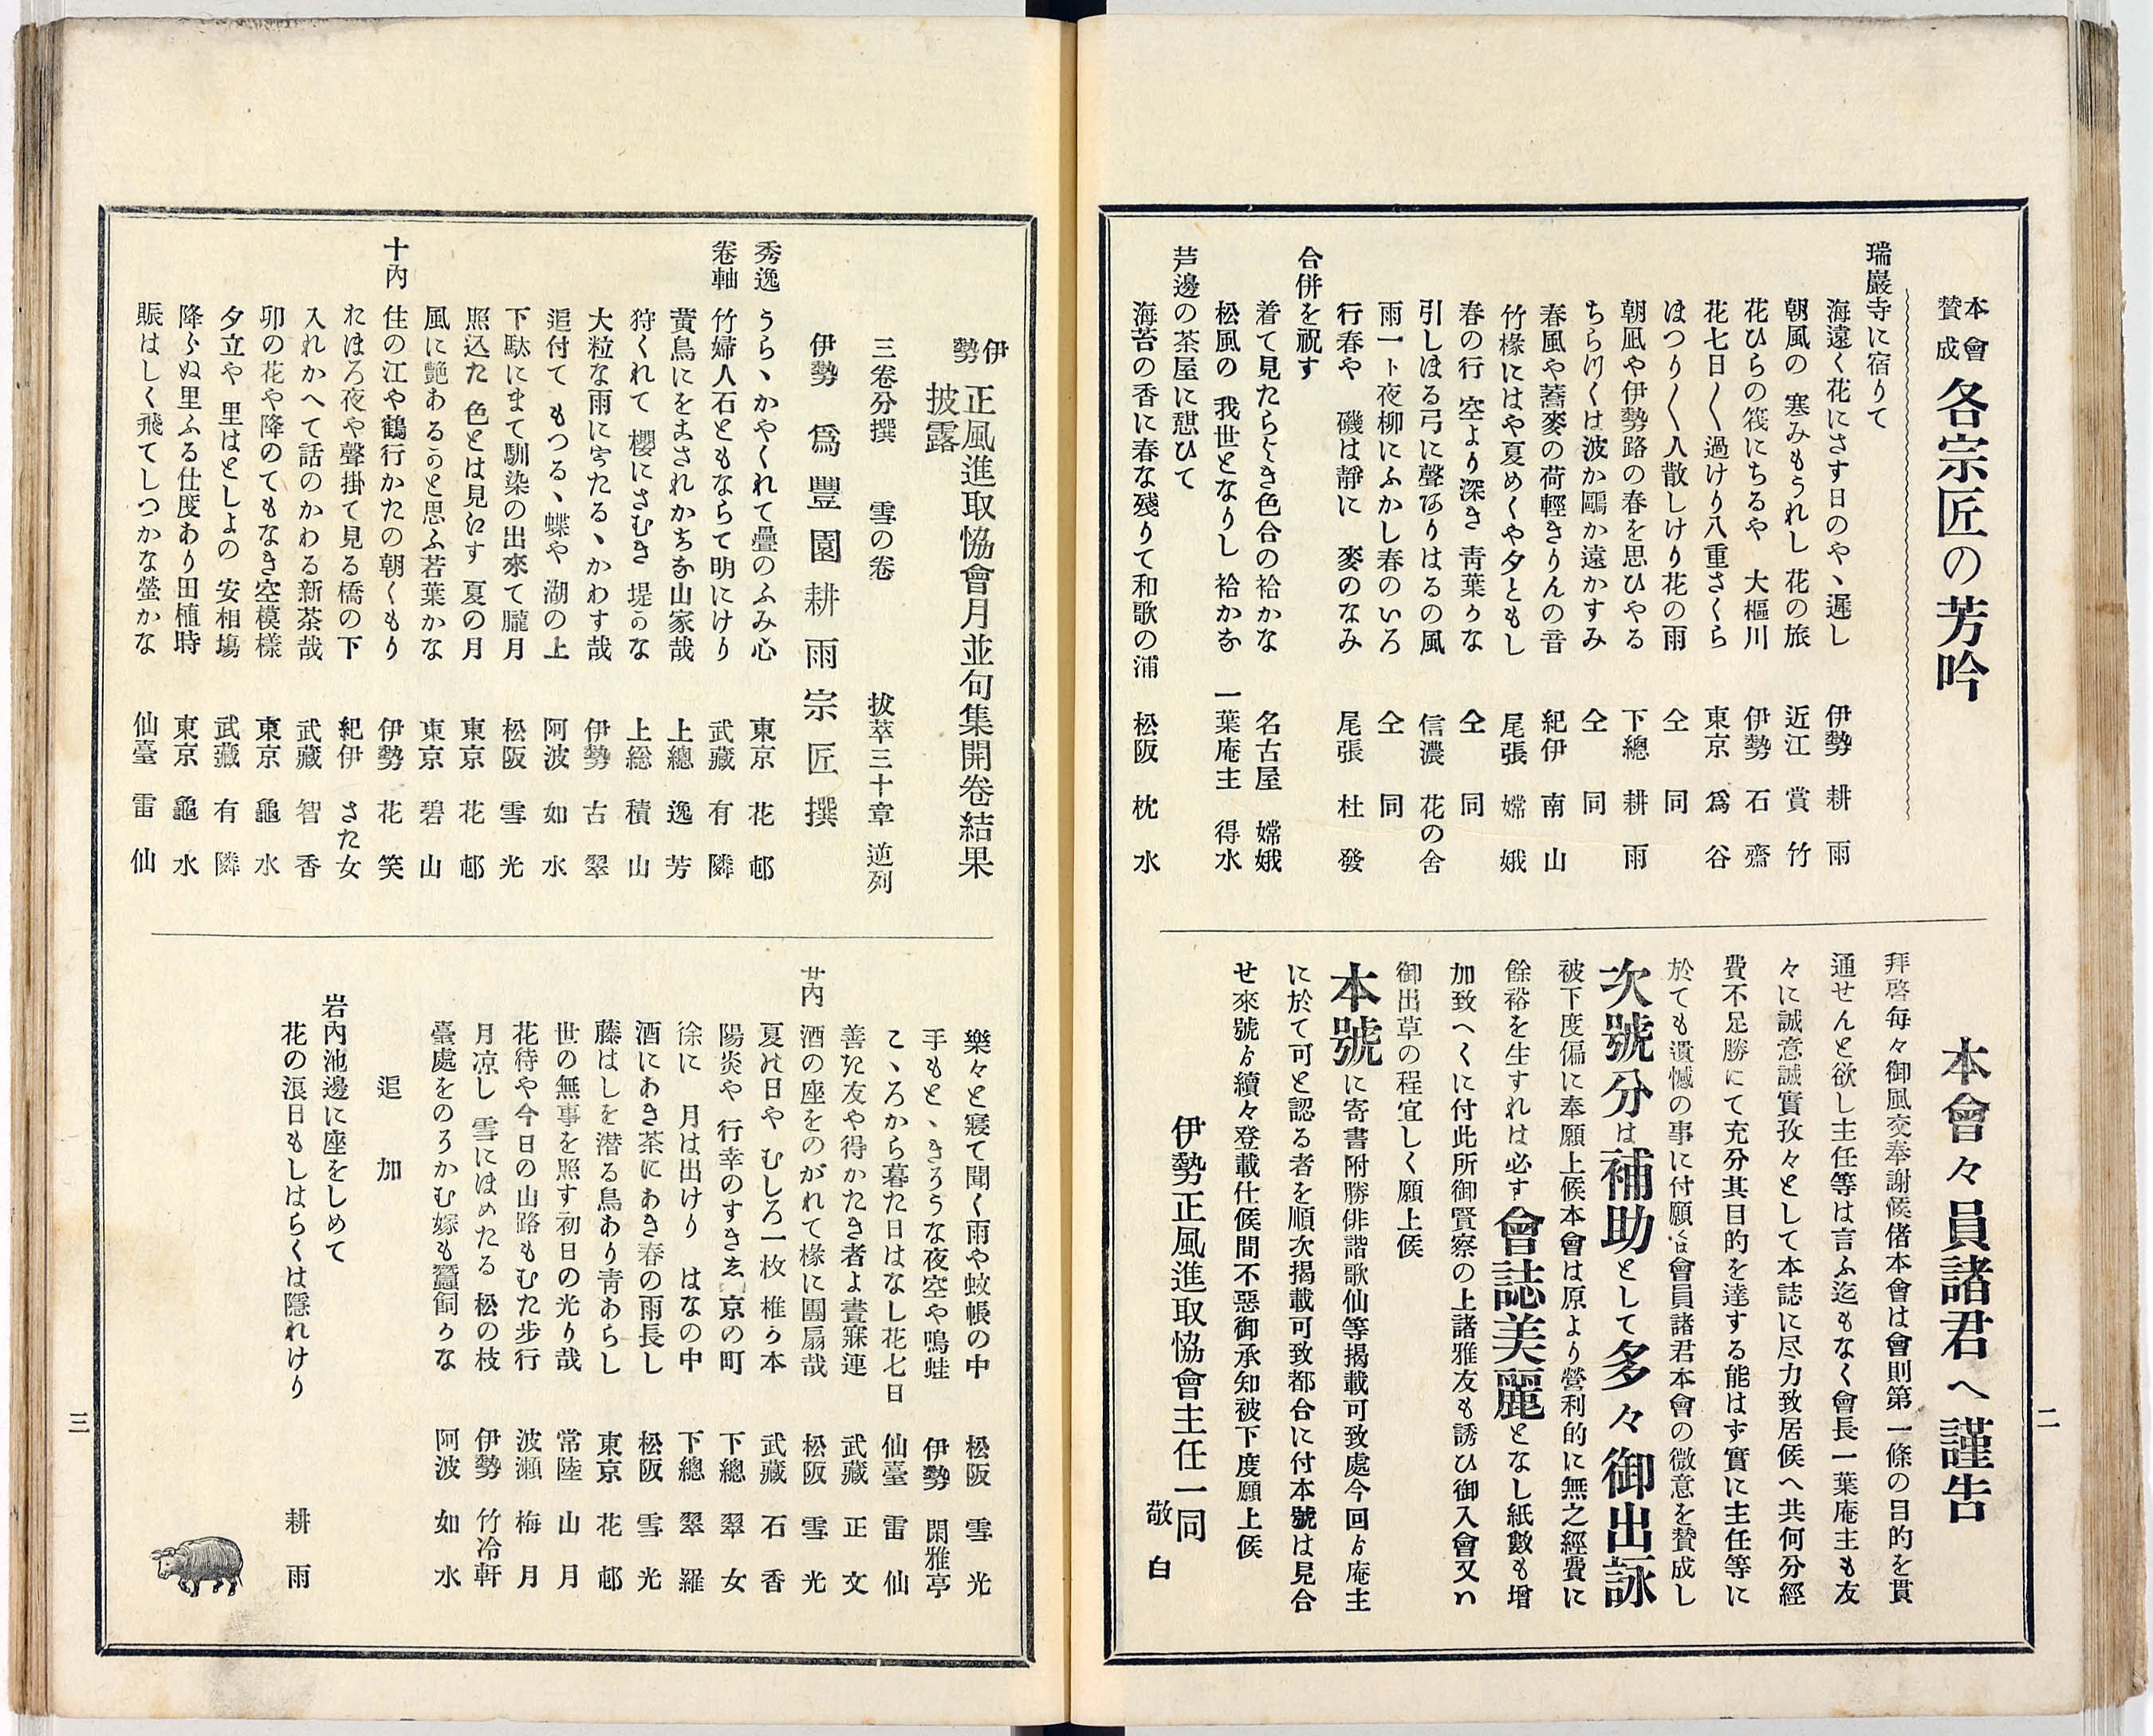 本會賛成 各宗匠の芳吟
瑞巖寺に宿りて
海遠く花にさす日のやゝ遲し 伊勢 耕雨
朝風の寒みもうれし花の旅 近江 賞竹
花ひらの筏にちるや大樞川 伊勢 石齋
花七日〱過けり八重さくら 東京 爲谷
ほつり〱人散しけり花の雨 仝 同
朝凪や伊勢路の春を思ひやる 下總 耕雨
ちら川くは波か鷗か遠かすみ 仝 同
春風や蕎麥の荷輕きりんの音 紀伊 南山
竹椽にはや夏めくや夕ともし 尾張 嫦娥
春の行空より深き靑葉かな 仝 同
引しほる弓に聲ありはるの風 信濃 花の舍
雨一ト夜柳にふかし春のいろ 仝 同
行春や磯は靜に麥のなみ 尾張 杜發
合併を祝す
着て見たらよき色合の袷かな 名古屋 嫦娥
松風の我世となりし袷かな 一葉庵主 得水
芦邊の茶屋に憇ひて
海苔の香に春な殘りて和歌の浦 松阪 枕水
本會々員諸君へ謹告
拜啓毎々御風交奉謝候偖本會は會則第一條の目的を貫
通せんと欲し主任等は言ふ迄もなく會長一葉庵主も友
々に誠意誠實孜々として本誌に尽力致居候へ共何分經
費不足勝にて充分其目的を達する能はず實に主任等に
於ても遺憾の事に付願くは會員諸君本會の微意を賛成し
次號分は補助として多々御出詠
被下度偏に奉願上候本會は原より營利的に無之經費に
餘裕を生すれは必す會誌美麗となし紙數も增
加致へくに付此所御賢察の上諸雅友も誘ひ御入會又ハ
御出草の程宜しく願上候
本號に寄書附勝俳諧歌仙等揭載可致處今回ゟ庵主
に於て可と認る者を順次揭載可致都合に付本號は見合
せ來號ゟ續々登載仕候間不惡御承知被下度願上候
伊勢正風進取協會主任一同
敬白
二
伊勢 正風進取恊會月並句集開卷結果披露
三卷分撰 雪の卷 拔萃三十章逆列
伊勢 爲豐園耕雨宗匠撰
秀逸 うらゝかやくれて疊のふみ心 東京 花邨
卷軸 竹婦人石ともならて明にけり 武藏 有隣
黄鳥にをまされかちな山家哉 上總 逸芳
狩くれて櫻にさむき堤かな 上総 積山
大粒な雨に宇たるゝかわす哉 伊勢 古翠
追付てもつるゝ蝶や湖の上 阿波 如水
下駄にまて馴染の出來て朧月 松阪 雪光
照込た色とは見江す夏の月 東京 花邨
風に艶あるかと思ふ若葉かな 東京 碧山
十內 住の江や鶴行かたの朝くもり 伊勢 花笑
おほろ夜や聲掛て見る橋の下 紀伊 さた女
入れかへて話のかわる新茶哉 武藏 智香
卯の花や降のてもなき空模樣 東京 龜水
夕立や里はとしよの安相塲 武藏 有隣
降らぬ里ふる仕度あり田植時 東京 龜水
賑はしく飛てしつかな螢かな 仙臺 雷仙
樂々と寢て聞く雨や蚊帳の中 松阪 雪光
手もとゝきろうな夜空や鳴蛙 伊勢 閑雅亭
こゝろから暮た日はなし花七日 仙臺 雷仙
善た友や得かたき者よ晝寐連 武藏 正文
廿內 酒の座をのがれて椽に團扇哉 松阪 雪光
夏の日やむしろ一枚椎か本 武藏 石香
陽炎や行幸のすきし京の町 下總 翠女
徐に月は出けりはなの中 下總 翠羅
酒にあき茶にあき春の雨長し 松阪 雪光
藤はしを潛る鳥あり靑あらし 東京 花邨
世の無事を照す初日の光り哉 常陸 山月
花待や今日の山路もむた步行 波瀬 梅月
月凉し雪にほめたる松の枝 伊勢 竹冷軒
臺處をのろかむ嫁も蠶飼かな 阿波 如水
追加
岩內池邊に座をしめて
花の浪日もしはらくは隱れけり 耕雨
三